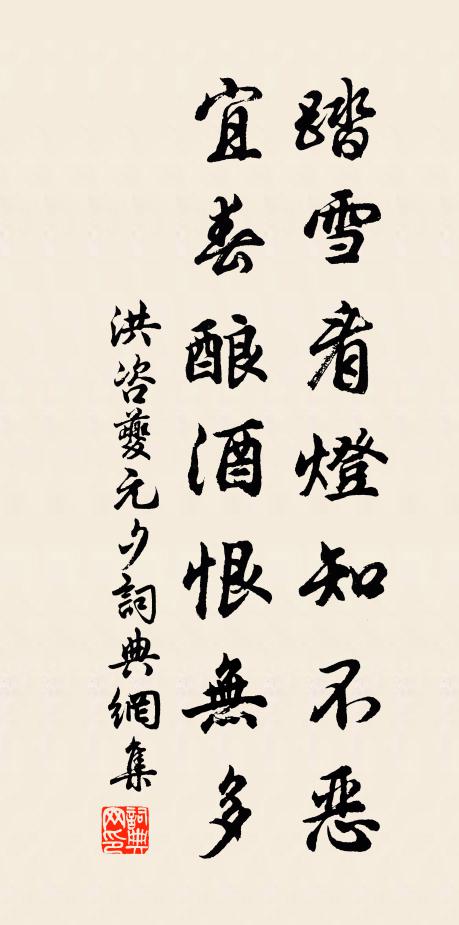 踏雪看燈知不恶
宜春酿酒恨無多
洪咨夔元夕詞典網集
詞典网印